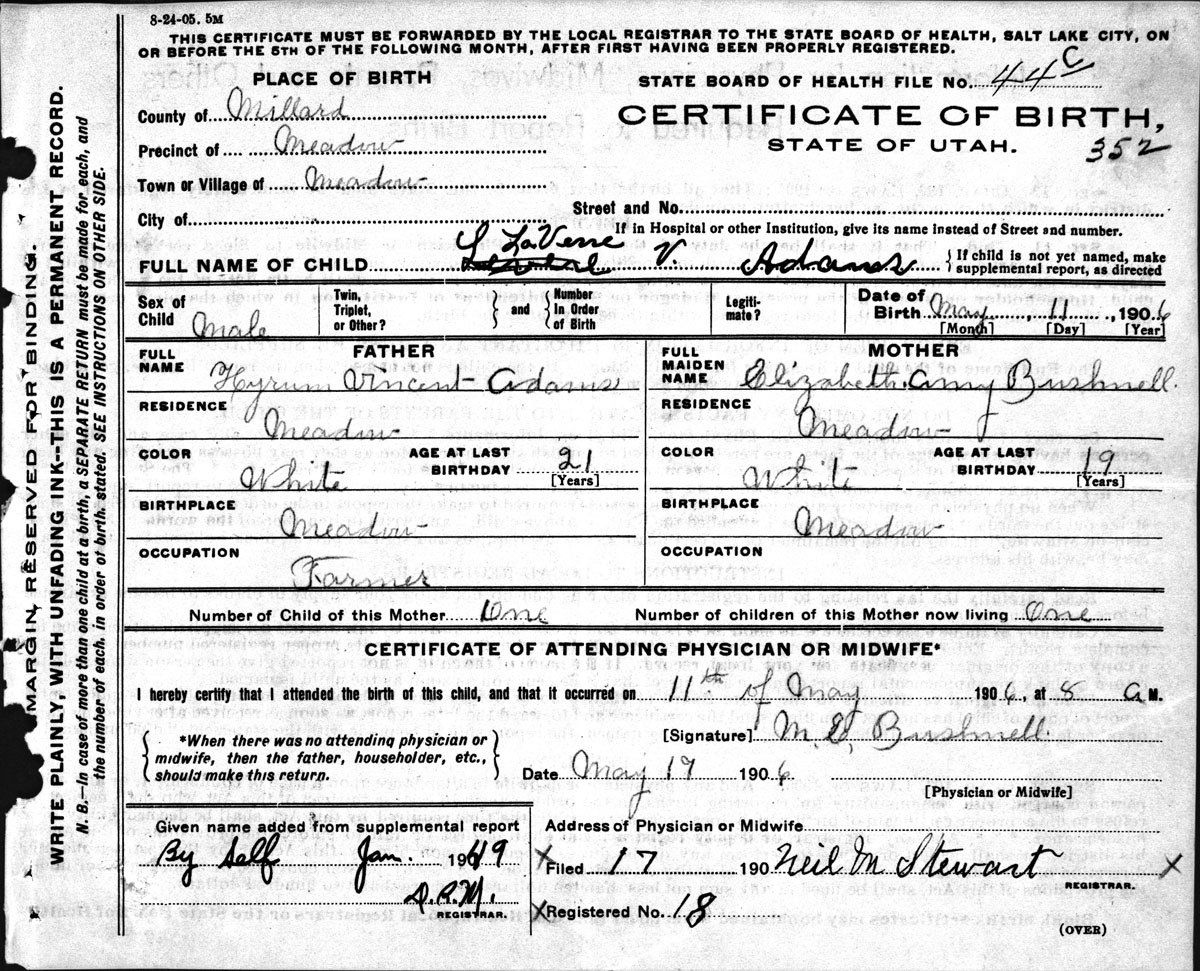 8-24-05. 5M
THIS CERTIFICATE MUST BE FORWARDED BY THE LOCAL REGISTRAR TO THE STATE BOARD OF HEALTH, SALT LAKE CITY, ON
OR BEFORE THE 5TH OF THE FOLLOWING MONTH, AFTER FIRST HAVING BEEN PROPERLY REGISTERED.
PLACE OF BIRTH
STATE BOARD OF HEALTH FILE No. 44 C
County of Millard
CERTIFICATE OF BIRTH,
Precinct of Meadow
STATE OF UTAH. 352
Town or Village of Meadow
City of
Street and No.
If in Hospital or other Institution, give its name instead of Street and number.
LaVerne
FULL NAME OF CHILD V. Adams
{If child is not yet named, make supplemental report, as directed
Sex of Child Male
Twin, Triplet, or Other? } and { Number In Order of Birth
Legitimate?
Date of Birth May 11, 1906
[Month] [Day] [Year]
FATHER
MOTHER
FULL NAME Hyrum Vincent Adams
FULL MAIDEN NAME Elizabeth Amy Bushnell.
RESIDENCE Meadow
RESIDENCE Meadow
COLOR White AGE AT LAST BIRTHDAY 21 [Years]
COLOR White AGE AT LAST BIRTHDAY 19 [Years]
BIRTHPLACE Meadow
BIRTHPLACE Meadow
OCCUPATION Farmer
OCCUPATION
Number of Child of this Mother One
Number of children of this Mother now living One
CERTIFICATE OF ATTENDING PHYSICIAN OR MIDWIFE*
I hereby certify that I attended the birth of this child, and that it occurred on 11th of May 1906, at 8 A M.
[Signature] Bushnell.
{*When there was no attending physician or midwife, then the father, householder, etc., should make this return.}
Date May 17 1906
[Physician or Midwife]
Given name added from supplemental report
Address of Physician or Midwife
By Self Jan. 1949
X Filed 17 190 Neil M Stewart X
REGISTRAR.
REGISTRAR.
X Registered No. 18
(OVER)
MARGIN RESERVED FOR BINDING.
WRITE PLAINLY, WITH UNFADING INK--THIS IS A PERMANENT RECORD.
N. B.—In case of more than one child at a birth, a SEPARATE RETURN must be made for each, and
the number of each, in order of birth, stated. SEE INSTRUCTIONS ON OTHER SIDE.